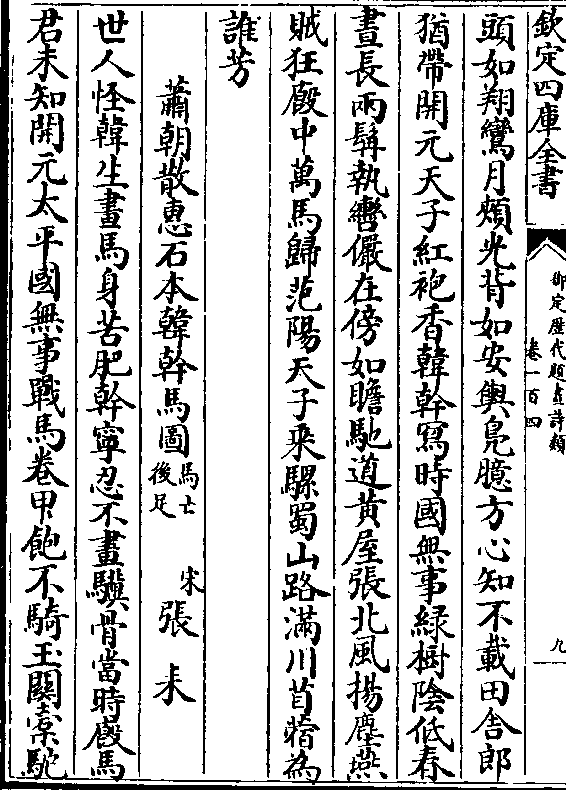 欽定四庫全書
御定歷代題畫詩類
卷一百四
九
頭如翔鸞月頰光背如安輿鳧臆方心知不載田舍郎
猶帶開元天子紅袍香韓幹寫時國無事綠樹陰低春
晝長兩髯執轡儼在傍如瞻馳道黃屋張北風揚塵燕
賊狂廐中萬馬歸范陽天子乘騾蜀山路滿川苜蓿為
誰芳
蕭朝散惠石本韓幹馬圖馬亡後足 宋 張耒
世人怪韓生畫馬身苦肥幹寧忍不畫驥骨當時廐馬
君未知開元太平國無事戰馬卷甲飽不騎玉關橐駞